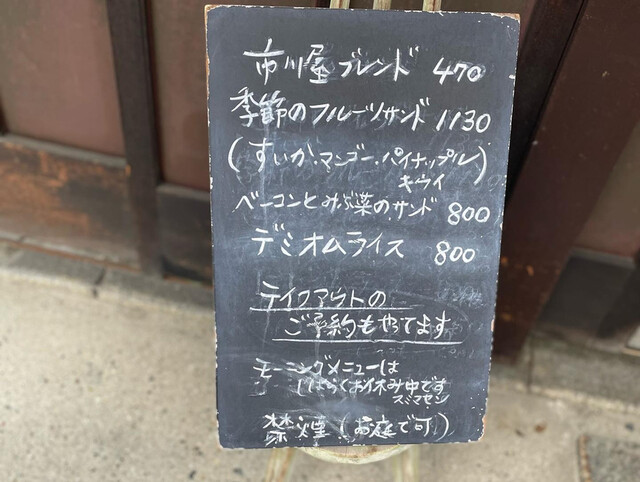 市川屋ブレンド 470
季節のフルーツサンド 1130
(すいか・マンゴー・パイナップル)
キウイ
ベーコンとみぶ菜のサンド 800
デミオムライス 800
テイクアウトの
ご予約もやってます
モーニングメニューは
しばらくお休み中です
スミマセン
禁煙(お庭で可)